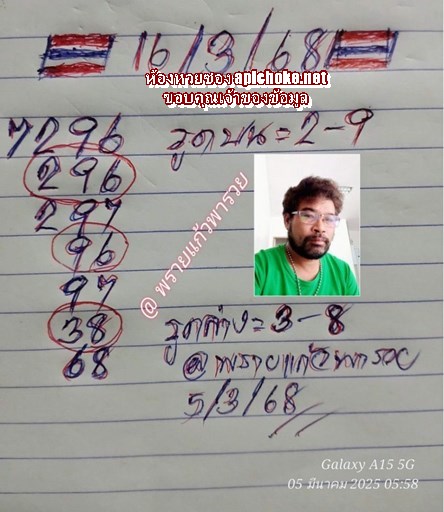 16/3/68
ห้องหวยซอง apichoke.net
ขอบคุณเจ้าของข้อมูล
7296 รูดบน=2-9
296
297
96
@ พรายแก้วพารวย
97
38 รูดล่าง=3-8
68 @พรายแก้วพารวย
5/3/68
Galaxy A15 5G
05 มีนาคม 2025 05:58